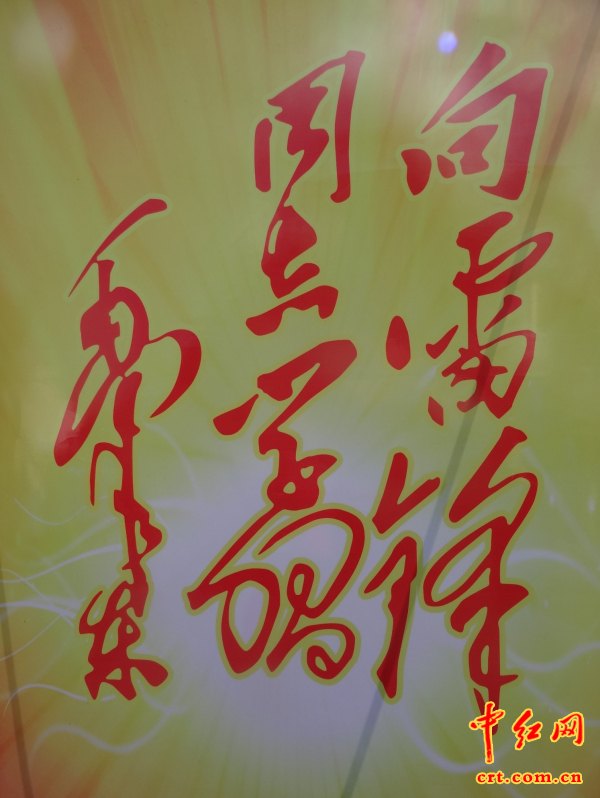 向雷锋
同志学习
毛泽东
中红网
crt.com.cn